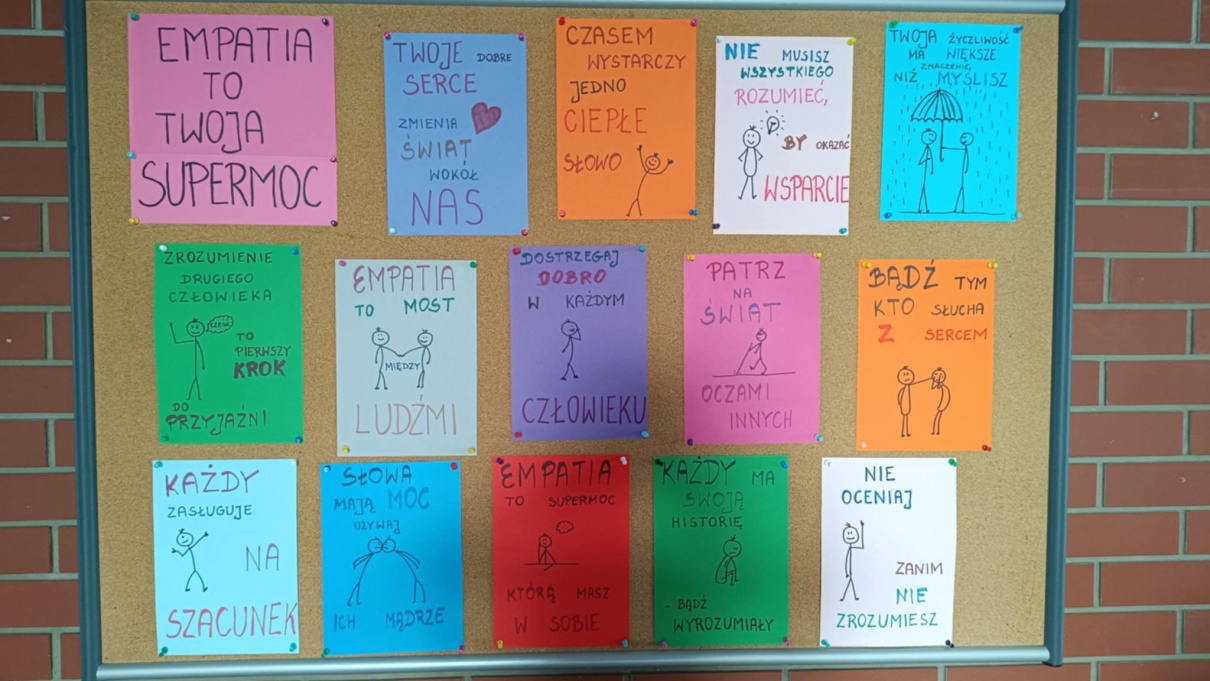 EMPATIA
TO
TWOJA
SUPERMOC
TWOJE DOBRE
SERCE
ZMIENIA
ŚWIAT
WOKÓŁ
NAS
CZASEM
WYSTARCZY
JEDNO
CIEPŁE
SŁOWO
NIE MUSISZ
WSZYSTKIEGO
ROZUMIEĆ,
BY OKAZAĆ
WSPARCIE
TWOJA ŻYCZLIWOŚĆ
MA WIĘKSZE
ZNACZENIE,
NIŻ MYŚLISZ
ZROZUMIENIE
DRUGIEGO
CZŁOWIEKA
CZEŚĆ
TO
PIERWSZY
KROK
DO
PRZYJAŹNI
EMPATIA
TO MOST
MIĘDZY
LUDŹMI
DOSTRZEGAJ
DOBRO
W KAŻDYM
CZŁOWIEKU
PATRZ
NA
ŚWIAT
OCZAMI
INNYCH
BĄDŹ TYM
KTO SŁUCHA
Z SERCEM
KAŻDY
ZASŁUGUJE
NA
SZACUNEK
SŁOWA
MAJĄ MOC
UŻYWAJ
ICH MĄDRZE
EMPATIA
TO SUPERMOC
KTÓRĄ MASZ
W SOBIE
KAŻDY MA
SWOJĄ
HISTORIĘ
- BĄDŹ
WYROZUMIAŁY
NIE
OCENIAJ
ZANIM
NIE
ZROZUMIESZ